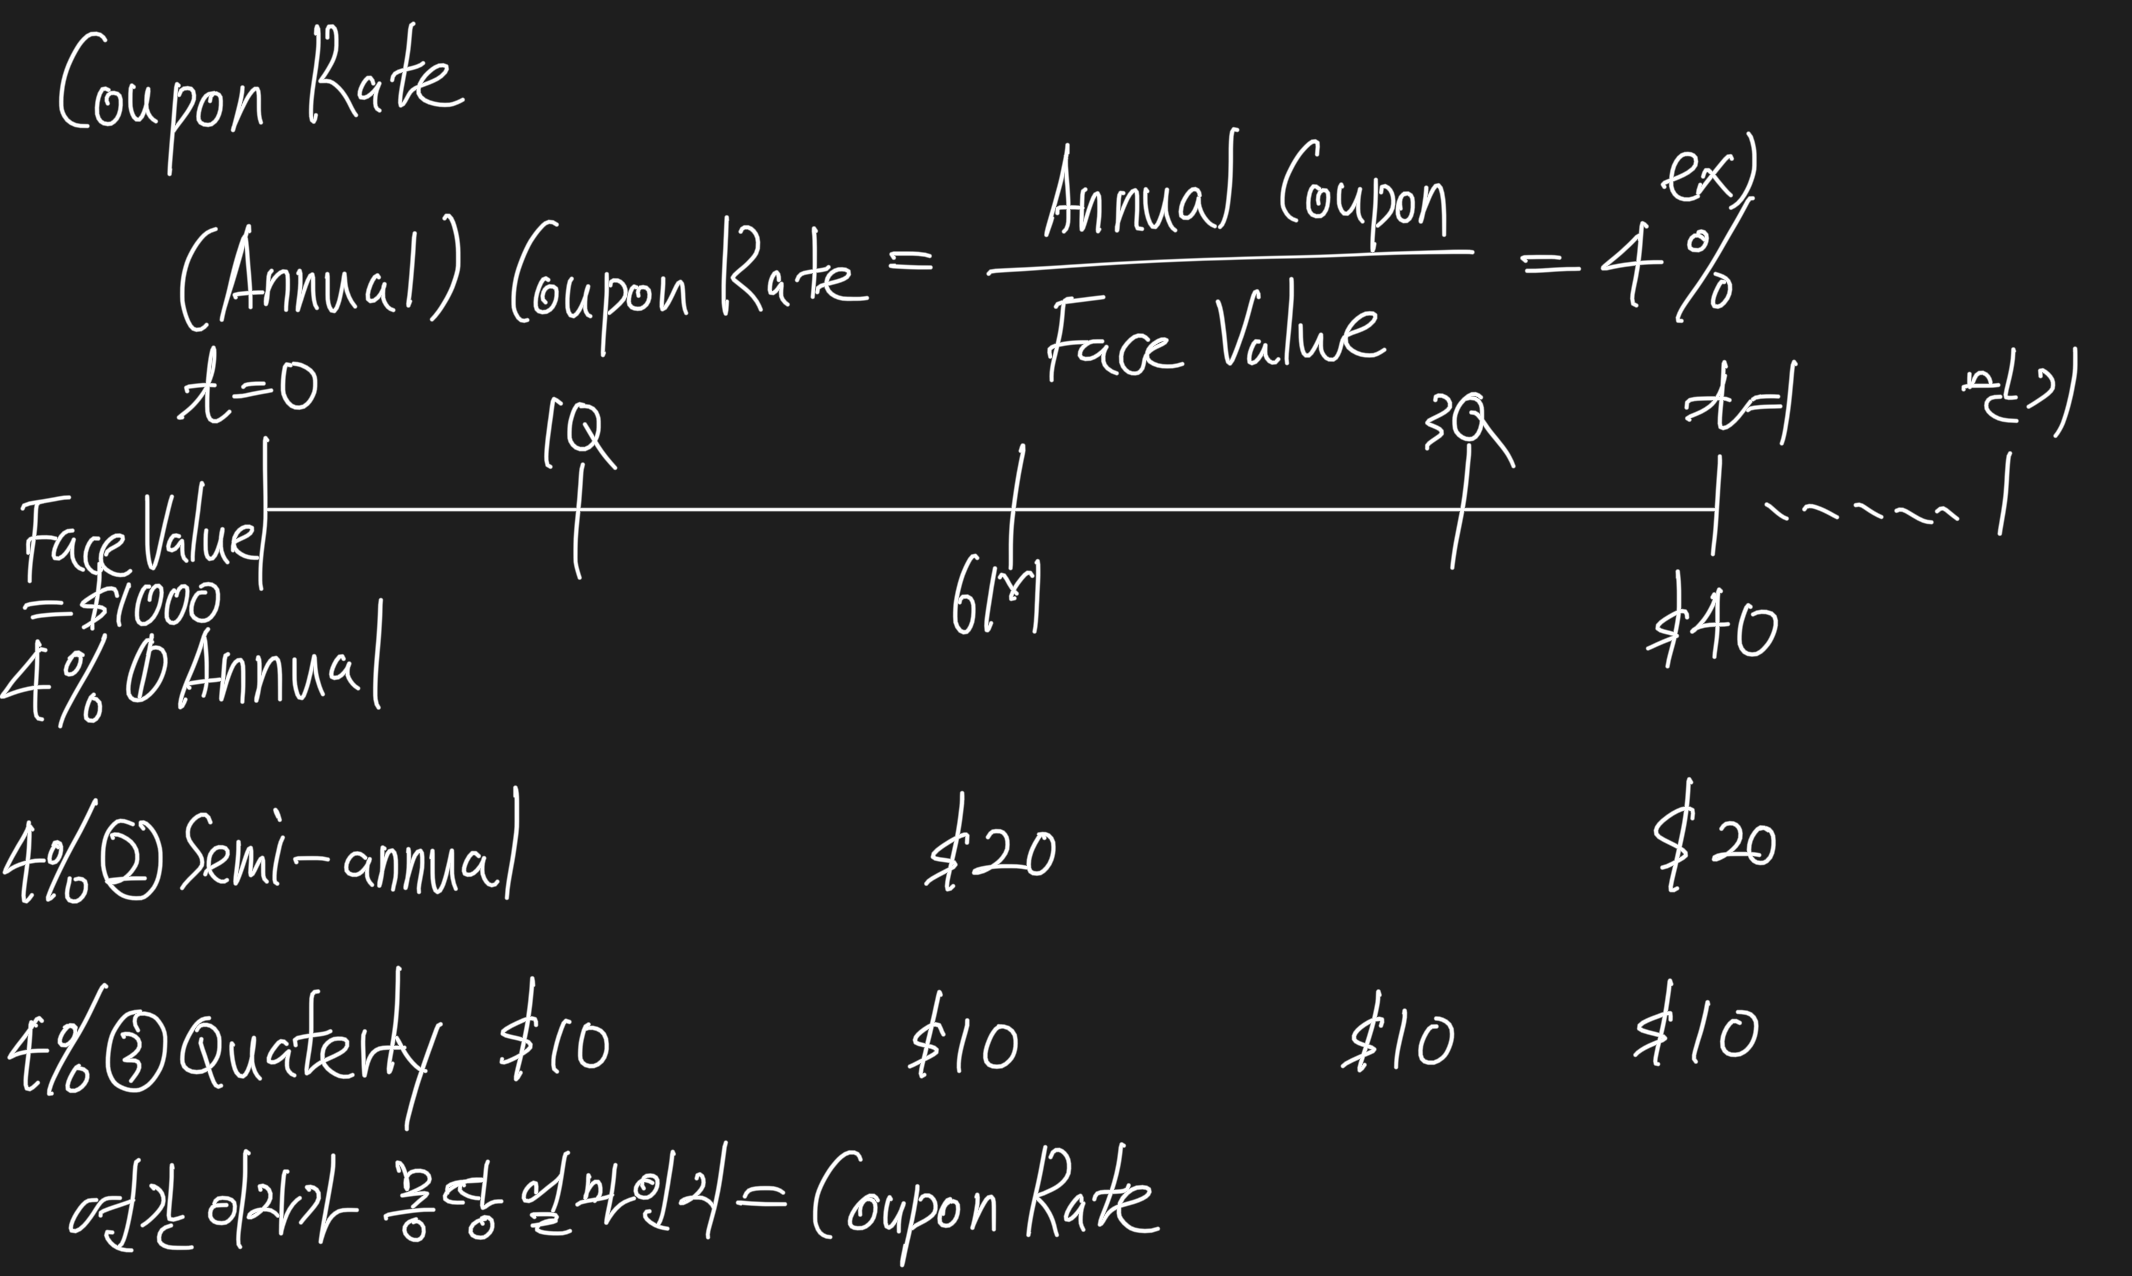 Coupon Rate
ex)
(Annual) Coupon Rate = Annual Coupon / Face Value = 4%
t=0 1Q 3Q t=1 만기
Face Value
= $1000
6M $40
4% ① Annual
4% ② Semi-annual $20 $20
4% ③ Quaterly $10 $10 $10 $10
연간 이자가 총합 얼마인지 = Coupon Rate